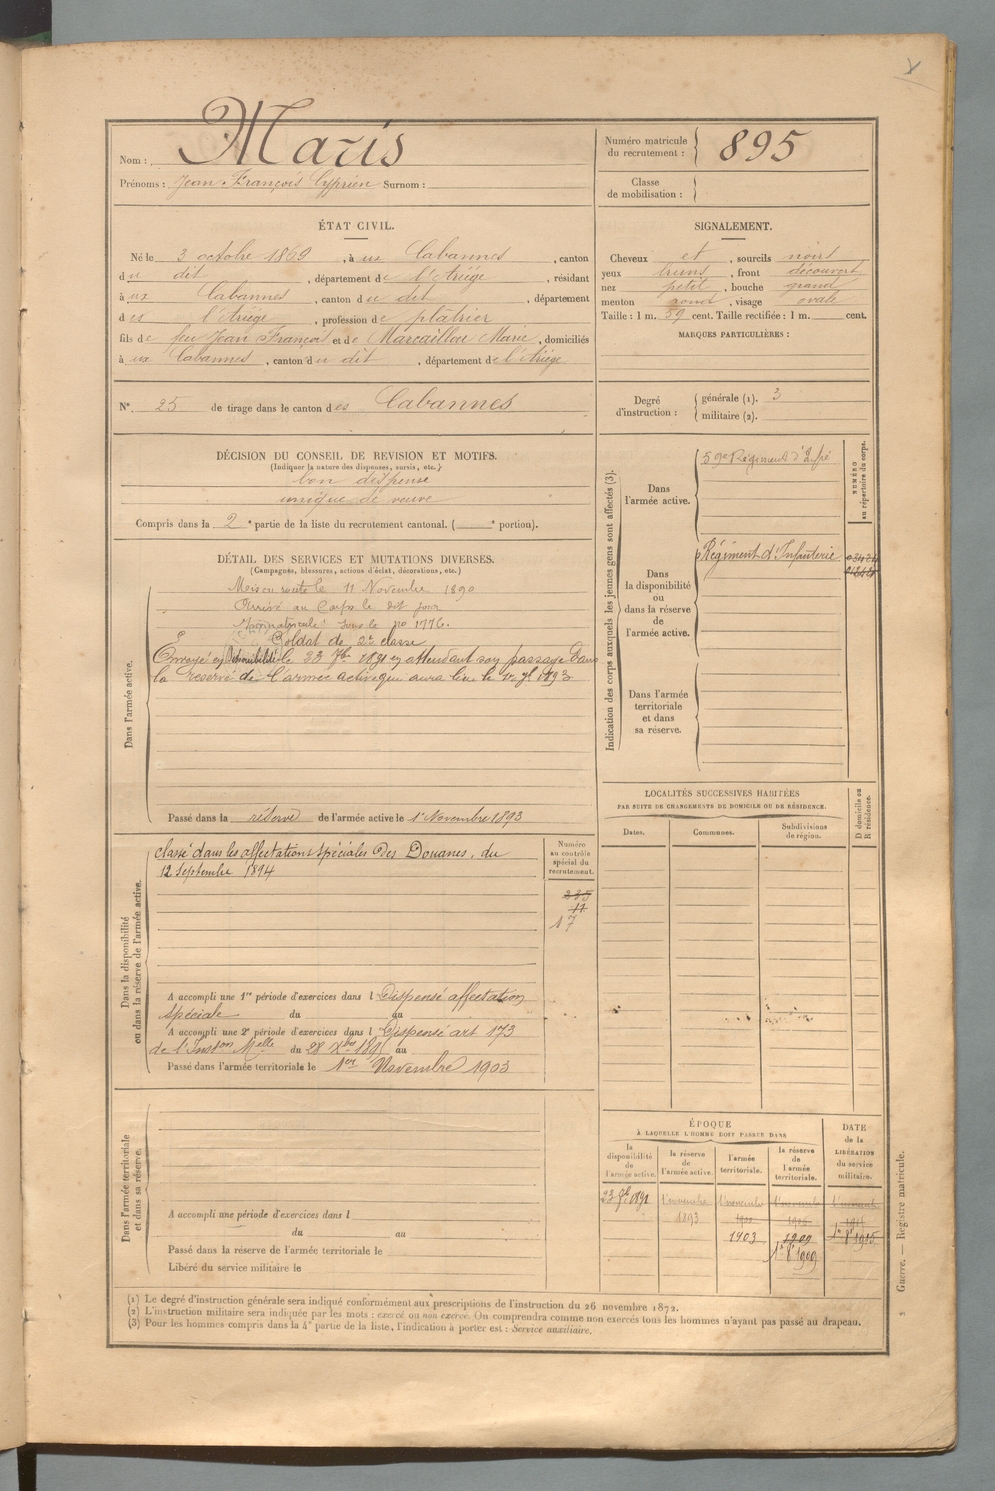 Nom : Maris
Prénoms : Jean François Cyprien Surnom :
Numéro matricule
du recrutement : 895
Classe
de mobilisation :
ÉTAT CIVIL.
Né le 3 octobre 1869, à ux Cabannes, canton
du dit, département de l'Ariège, résidant
à ux Cabannes, canton du dit, département
des l'Ariège, profession de plâtrier
fils de feu Jean François et de Marcaillou Marie, domiciliés
à ux Cabannes, canton du dit, département de l'Ariège
SIGNALEMENT.
Cheveux et, sourcils noirs
yeux bruns, front découvert
nez petit, bouche grand
menton rond, visage ovale
Taille : 1 m. 59 cent. Taille rectifiée : 1 m. cent.
MARQUES PARTICULIÈRES :
N° 25 de tirage dans le canton des Cabannes
Degré
d'instruction :
générale (1). 3
militaire (2).
DÉCISION DU CONSEIL DE REVISION ET MOTIFS.
(Indiquer la nature des dispenses, sursis, etc.)
bon dispensé
unique de veuve
Compris dans la 2e partie de la liste du recrutement cantonal. ( e portion).
DÉTAIL DES SERVICES ET MUTATIONS DIVERSES.
(Campagnes, blessures, actions d'éclat, décorations, etc.)
Dans l'armée active.
Mis en route le 11 Novembre 1890
Arrivé au Corps le dit jour
Immatriculé sous le no 1776.
Soldat de 2e classe
Envoyé en Disponibilité le 23 7bre 1891 en attendant son passage dans
la réserve de l'armée active qui aura lieu le 1er 9bre 1893
Passé dans la réserve de l'armée active le 1er Novembre 1893
Dans la disponibilité
ou dans la réserve de l'armée active.
classé dans les affectations spéciales des Douanes, du
12 Septembre 1894
Numéro
au contrôle
spécial du
recrutement.
235
11
17
A accompli une 1re période d'exercices dans l Dispensé affectation
spéciale du au
A accompli une 2e période d'exercices dans l Dispensé art 173
de l'Inston Melle du 28 Xbre 1895 au
Passé dans l'armée territoriale le 1er Novembre 1903
Dans l'armée territoriale
et dans sa réserve.
A accompli une période d'exercices dans l
du au
Passé dans la réserve de l'armée territoriale le
Libéré du service militaire le
Indication des corps auxquels les jeunes gens sont affectés (3).
NUMÉRO
au répertoire du corps.
Dans
l'armée active.
59e Régiment d'Infie
Dans
la disponibilité
ou
dans la réserve
de
l'armée active.
Régiment d'Infanterie
Dans l'armée
territoriale
et dans
sa réserve.
LOCALITÉS SUCCESSIVES HABITÉES
PAR SUITE DE CHANGEMENTS DE DOMICILE OU DE RÉSIDENCE.
D domicile ou
R résidence.
Dates.
Communes.
Subdivisions
de région.
ÉPOQUE
À LAQUELLE L'HOMME DOIT PASSER DANS
DATE
de la
LIBÉRATION
du service
militaire.
la
disponibilité
de
l'armée active.
la réserve
de
l'armée active.
l'armée
territoriale.
la réserve
de
l'armée
territoriale.
23 7bre 1891
1er novembre 1893
1er novembre 1903
1909
1er 8bre 1909
1er 8bre 1915
(1) Le degré d'instruction générale sera indiqué conformément aux prescriptions de l'instruction du 26 novembre 1872.
(2) L'instruction militaire sera indiquée par les mots : exercé ou non exercé. On comprendra comme non exercés tous les hommes n'ayant pas passé au drapeau.
(3) Pour les hommes compris dans la 4e partie de la liste, l'indication à porter est : Service auxiliaire.
Guerre. — Registre matricule.